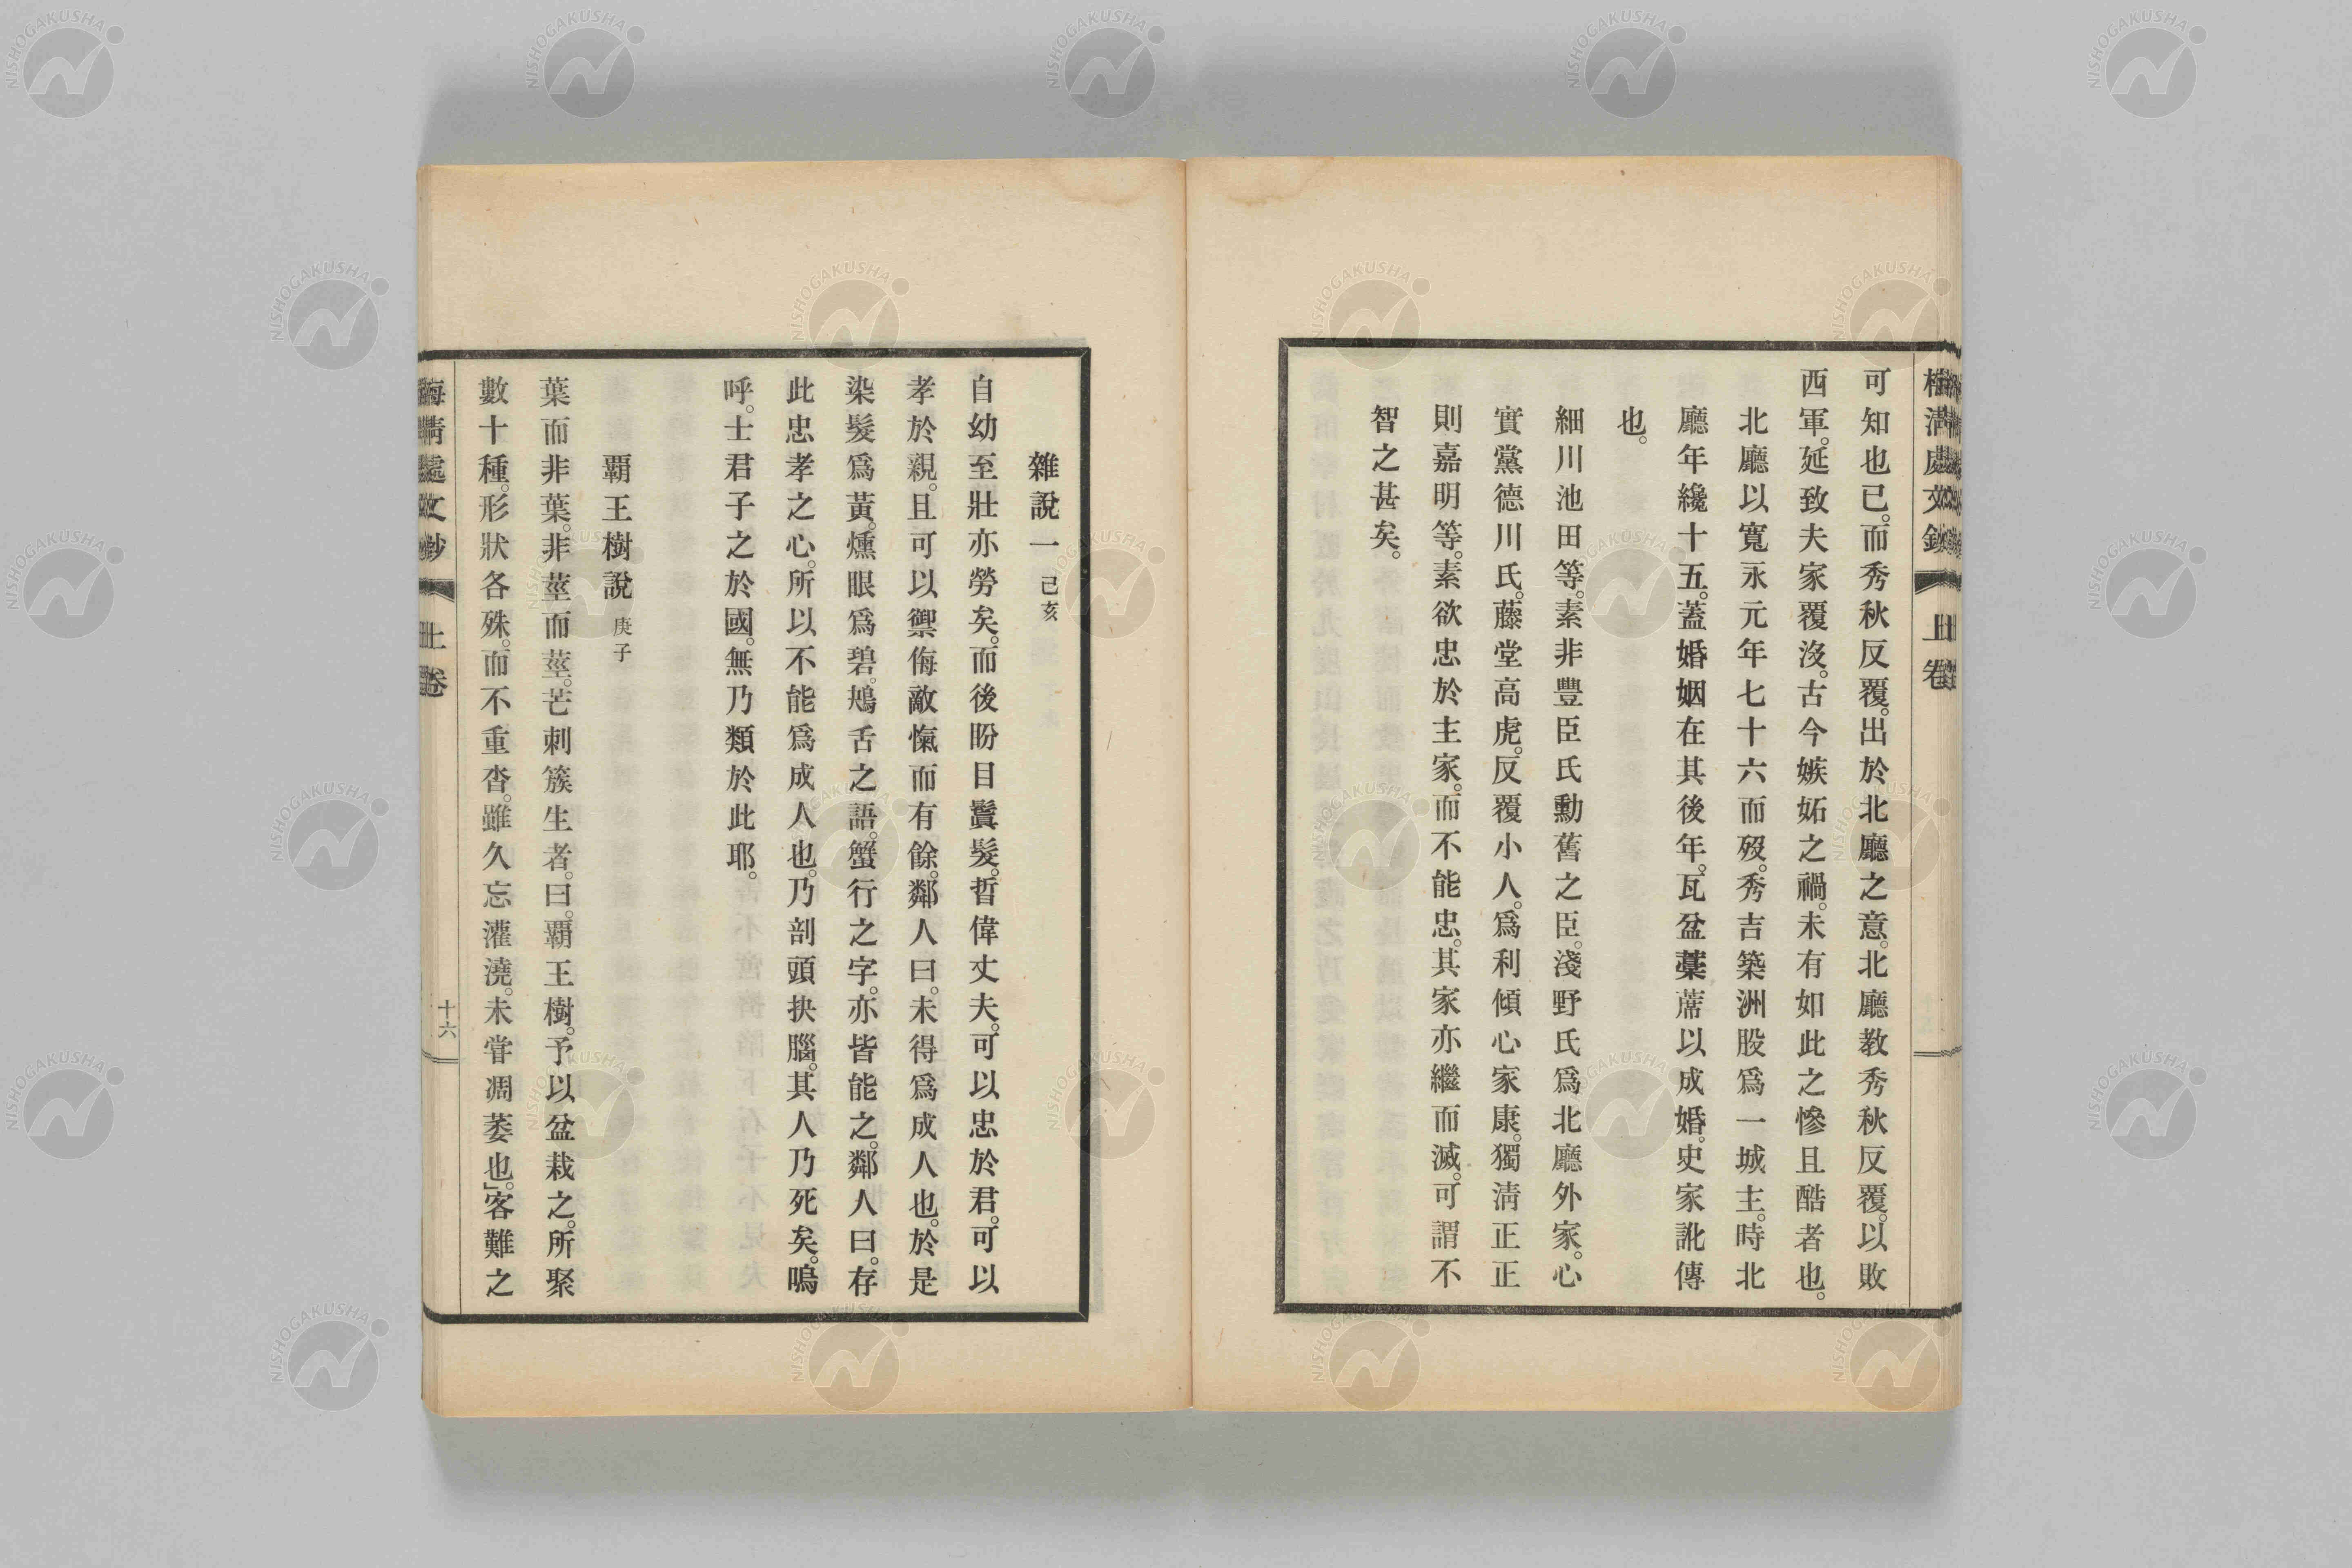 可知也已。而秀秋反覆。出於北廳之意。北廳教秀秋反覆。以敗
西軍。延致夫家覆沒。古今嫉妬之禍。未有如此之慘且酷者也。
北廳以寬永元年七十六而歿。秀吉築洲股爲一城主。時北
廳年纔十五。蓋婚姻在其後年。瓦盆藁蓆以成婚。史家訛傳
也。
細川池田等。素非豐臣氏勳舊之臣。淺野氏爲北廳外家。心
實黨德川氏。藤堂高虎。反覆小人。爲利傾心家康。獨淸正正
則嘉明等。素欲忠於主家。而不能忠。其家亦繼而滅。可謂不
智之甚矣。
雜說一 己亥
自幼至壯亦勞矣。而後盼目鬒髮。晢偉丈夫。可以忠於君。可以
孝於親。且可以禦侮敵愾而有餘。鄰人曰。未得爲成人也。於是
染髮爲黃。燻眼爲碧。鴂舌之語。蟹行之字。亦皆能之。鄰人曰。存
此忠孝之心。所以不能爲成人也。乃剖頭抉腦。其人乃死矣。嗚
呼。士君子之於國。無乃類於此耶。
覇王樹說 庚子
葉而非葉。非莖而莖。芒刺簇生者。曰。覇王樹。予以盆栽之。所聚
數十種。形狀各殊。而不重沓。雖久忘灌澆。未甞凋萎也。」客難之
上卷
十六